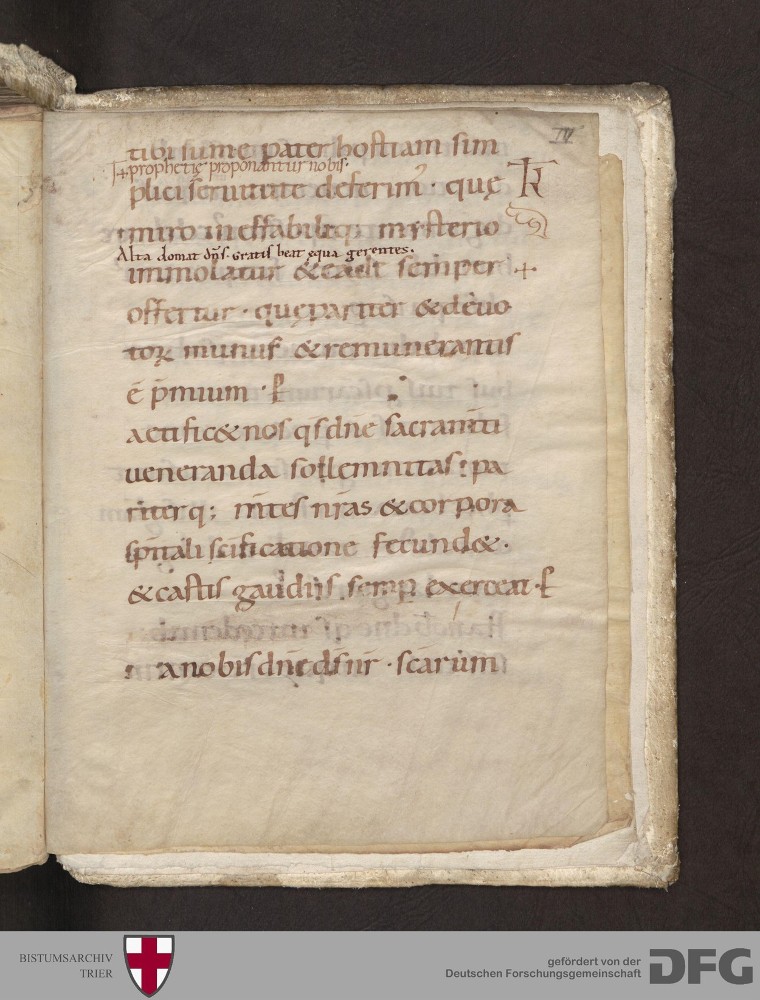 IV
tibi summe pater hostiam sim
prophetię proponantur nobis.
plici seruitute deferimꝰ · quę
miro ineffabiliq; mysterio
Alta domat dn̄s. gratis beat ęqua gerentes.
immolatur & eadē semper +
offertur · quę pariter & deuo
toꝝ munus & remunerantis
ē p̄mium · P
aetific& nos qs dn̄e sacram̄ti
ueneranda sollemnitas: pa
riterq; m̄tes nr̄as & corpora
sp̄itali sc̄ificatione fecund& .
& castis gaudiis semp̱ exerceat · P
a nobis dn̄e ds nr̄ · sc̄arum
BISTUMSARCHIV
TRIER
gefördert von der
Deutschen Forschungsgemeinschaft
DFG